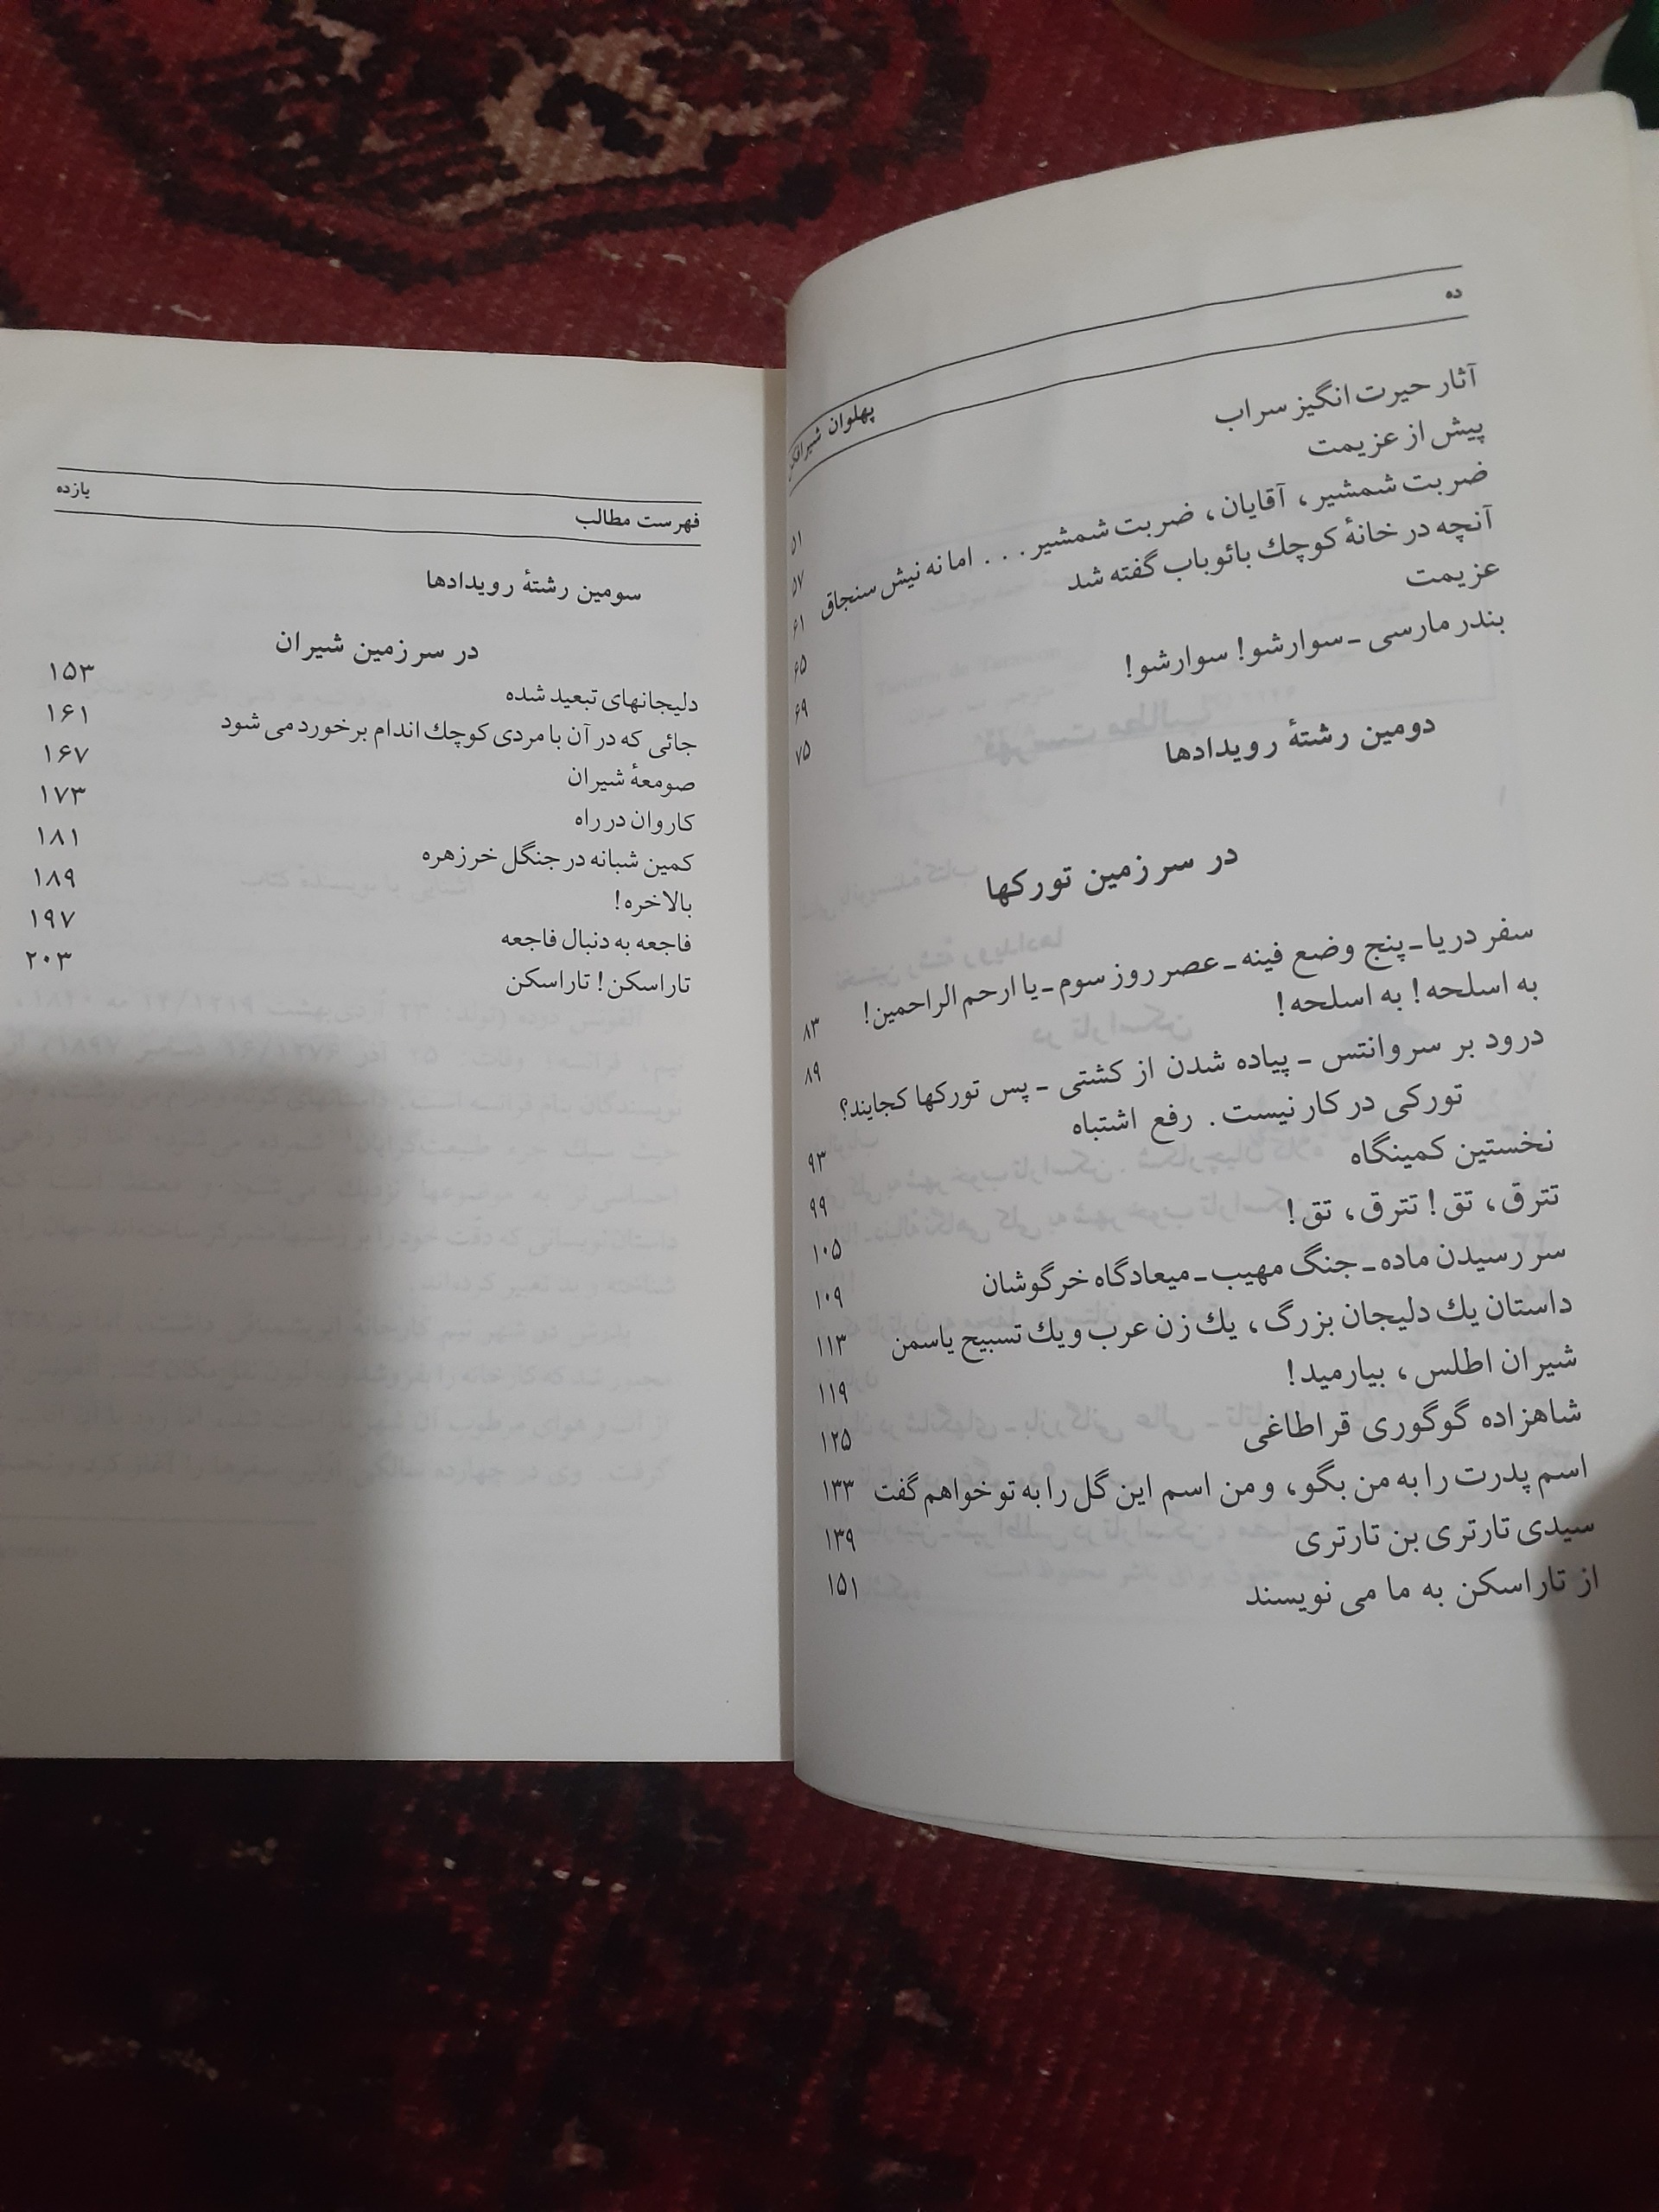 ده
پهلوان شیرافکن
آثار حیرت‌انگیز سراب ۵۱
پیش از عزیمت ۵۷
ضربت شمشیر، آقایان، ضربت شمشیر... اما نه نیش سنجاق ۶۱
آنچه در خانهٔ کوچك بائوباب گفته شد ۶۵
عزیمت ۶۹
بندر مارسی ـ سوارشو! سوارشو! ۷۵
دومین رشتهٔ رویدادها
در سرزمین تورکها
سفر دریا ـ پنج وضع فینه ـ عصر روز سوم ـ یا ارحم الراحمین! ۸۳
به اسلحه! به اسلحه! ۸۹
درود بر سروانتس ـ پیاده شدن از کشتی ـ پس تورکها کجایند؟
تورکی در کار نیست. رفع اشتباه ۹۳
نخستین کمینگاه ۹۹
تترق، تق! تترق، تق! ۱۰۵
سر رسیدن ماده ـ جنگ مهیب ـ میعادگاه خرگوشان ۱۰۹
داستان یك دلیجان بزرگ، یك زن عرب و یك تسبیح یاسمن ۱۱۳
شیران اطلس، بیارمید! ۱۱۹
شاهزاده گوگوری قراطاغی ۱۲۵
اسم پدرت را به من بگو، و من اسم این گل را به تو خواهم گفت ۱۳۳
سیدی تارتری بن تارتری ۱۳۹
از تاراسکن به ما می نویسند ۱۵۱
فهرست مطالب
یازده
سومین رشتهٔ رویدادها
در سرزمین شیران
دلیجانهای تبعید شده ۱۵۳
جائی که در آن با مردی کوچك اندام برخورد می‌شود ۱۶۱
صومعهٔ شیران ۱۶۷
کاروان در راه ۱۷۳
کمین شبانه در جنگل خرزهره ۱۸۱
بالاخره! ۱۸۹
فاجعه به دنبال فاجعه ۱۹۷
تاراسکن! تاراسکن ۲۰۳